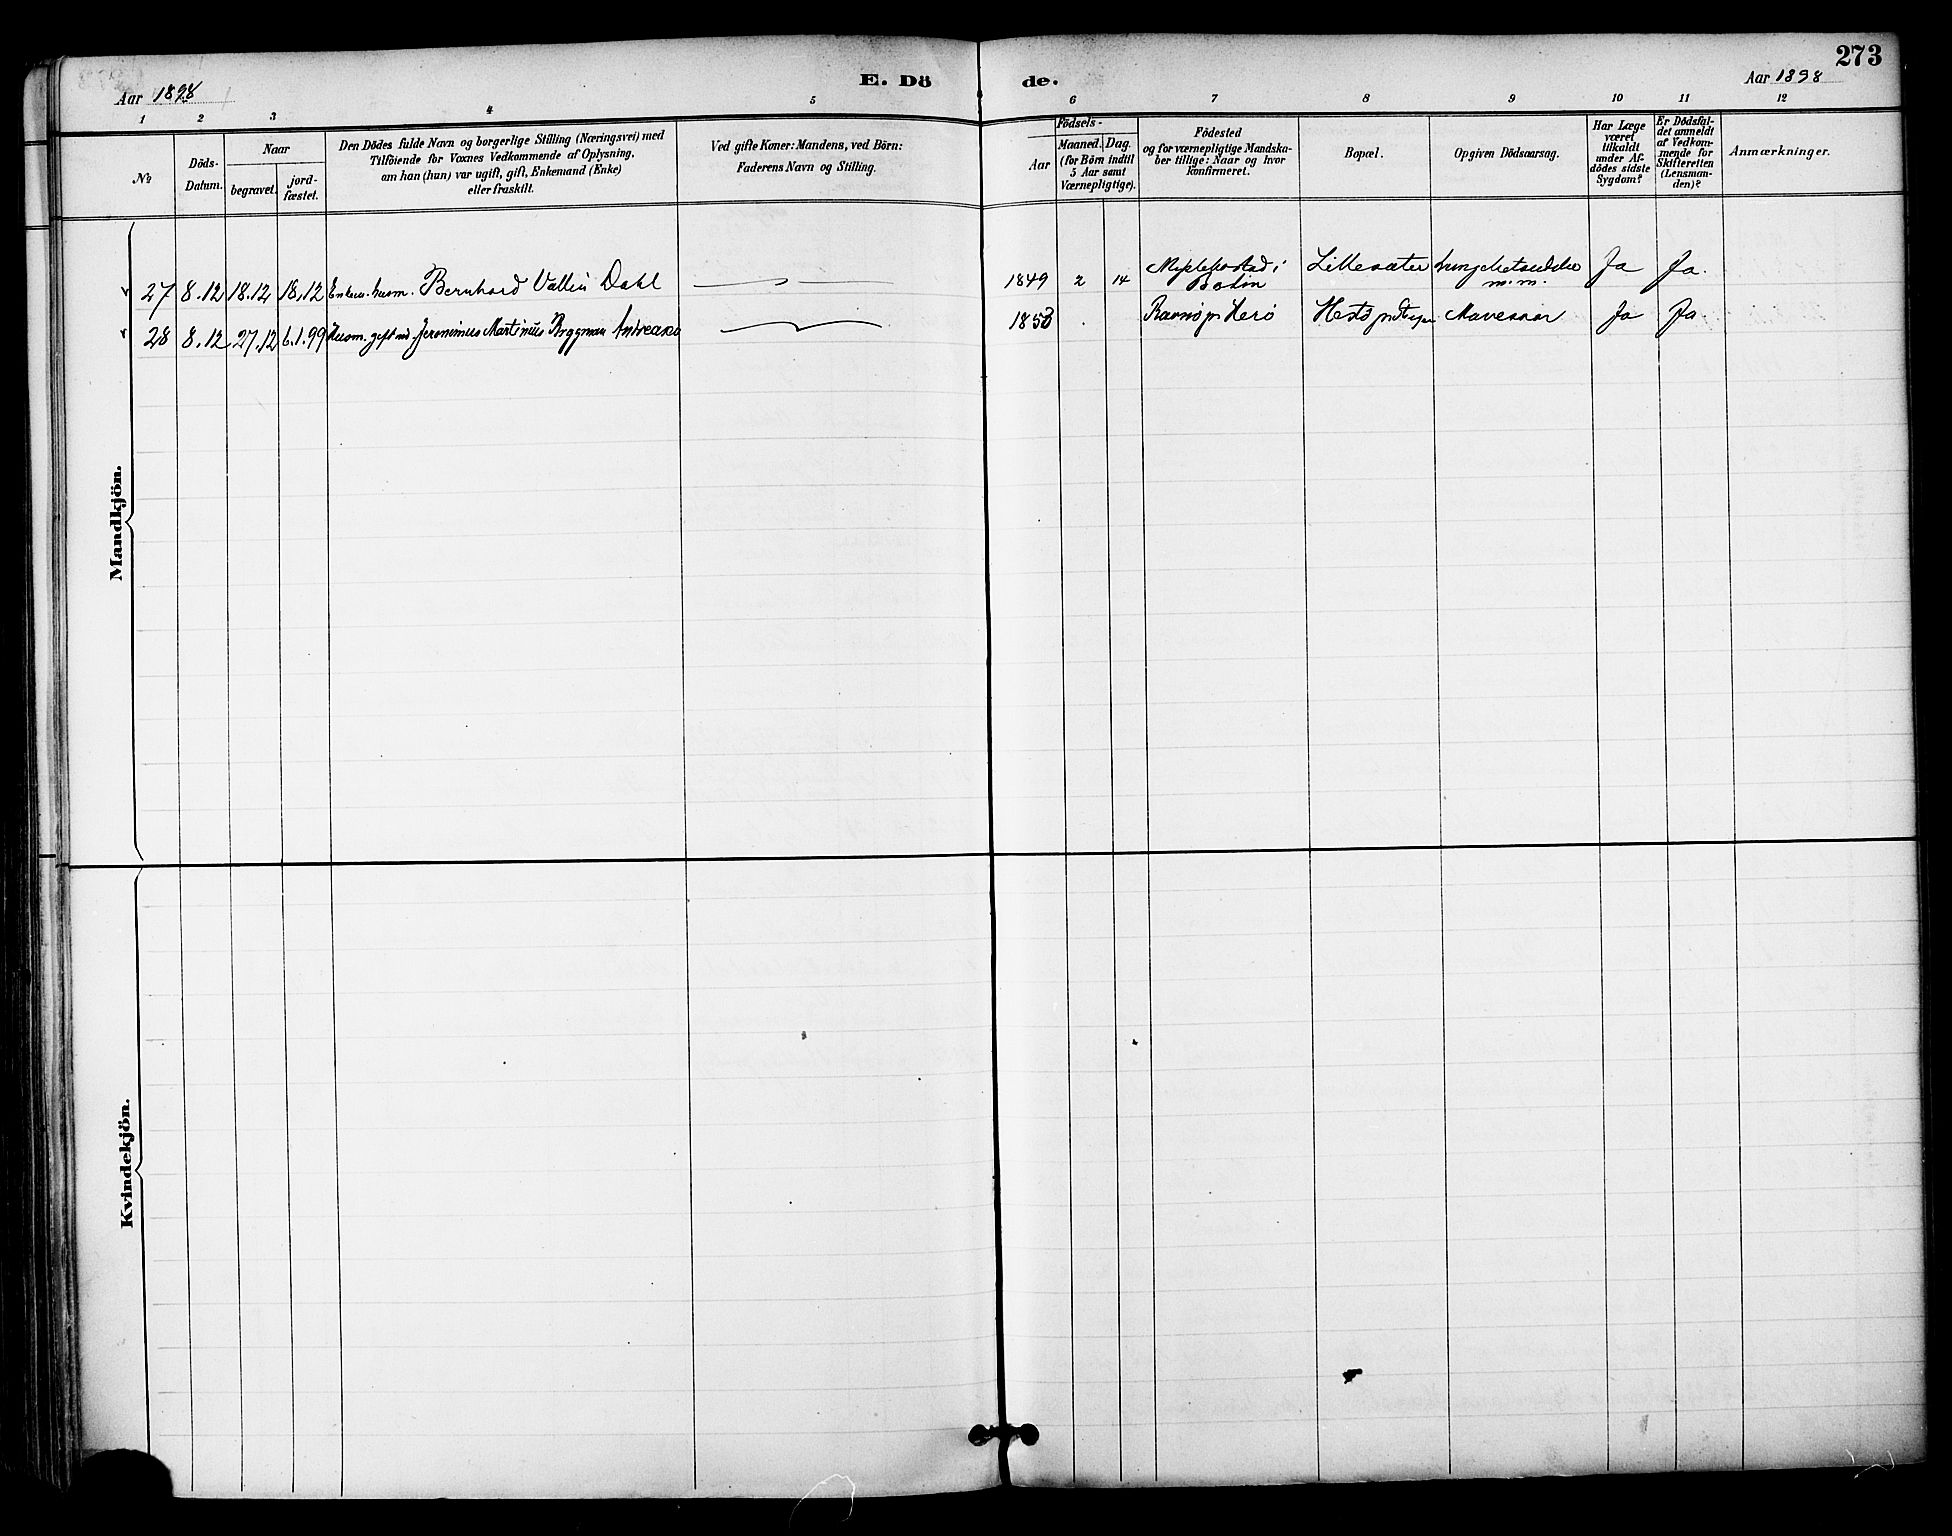 273
Aar 1898
E. Dö
de.
Aar 1898
1 2 3 4 5 6 7 8 9 10 11 12
No
Döds-
Datum.
Naar
begravet.
jord-
fæstet.
Den Dödes fulde Navn og borgerlige Stilling (Næringsvei) med
Tilföiende for Voxnes Vedkommende af Oplysning,
om han (hun) var ugift, gift, Enkemand (Enke)
eller fraskilt.
Ved gifte Koner: Mandens, ved Börn:
Faderens Navn og Stilling.
Födsels-
Aar
Maaned. Dag.
(for Börn indtil
5 Aar samt
Værnepligtige).
Födested
og for værnepligtige Mandska-
ber tillige: Naar og hvor
konfirmeret.
Bopæl.
Opgiven Dödsaarsag.
Har Læge
været
tilkaldt
under Af-
dödes sidste
Sygdom?
Er Dödsfal-
det anmeldt
af Vedkom-
mende for
Skifteretten
(Lensman-
den)?
Anmærkninger.
Mandkjön.
27 8.12 18.12 18.12 husm. Bernhard Dahl 1849 2 14 i Lillesæter Ja Ja.
Bodin m.m.
28 8.12 27.12 6.1.99 Husm. gift md Jeronimus Martinus Bryggman 1853 Herö Mavesaar Ja Ja
Kvindekjön.